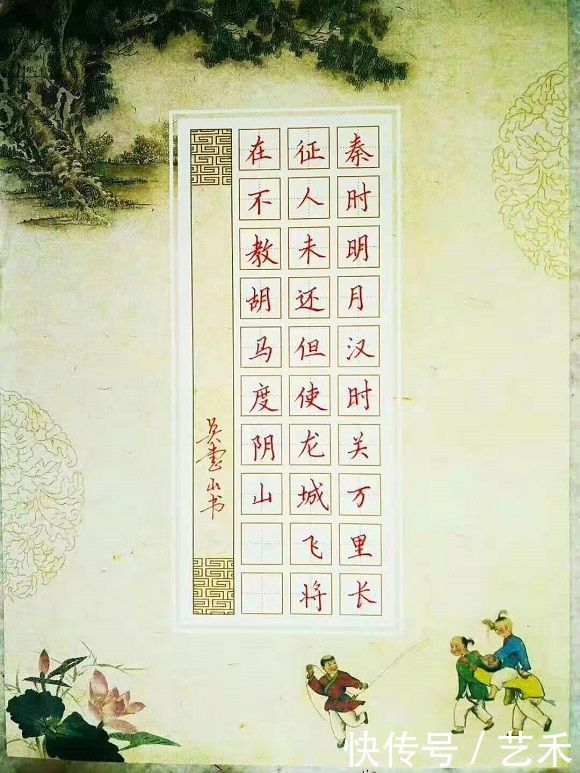 秦时明月汉时关万里长
征人未还但使龙城飞将
在不教胡马度阴山
吴山书
快传号 / 艺禾